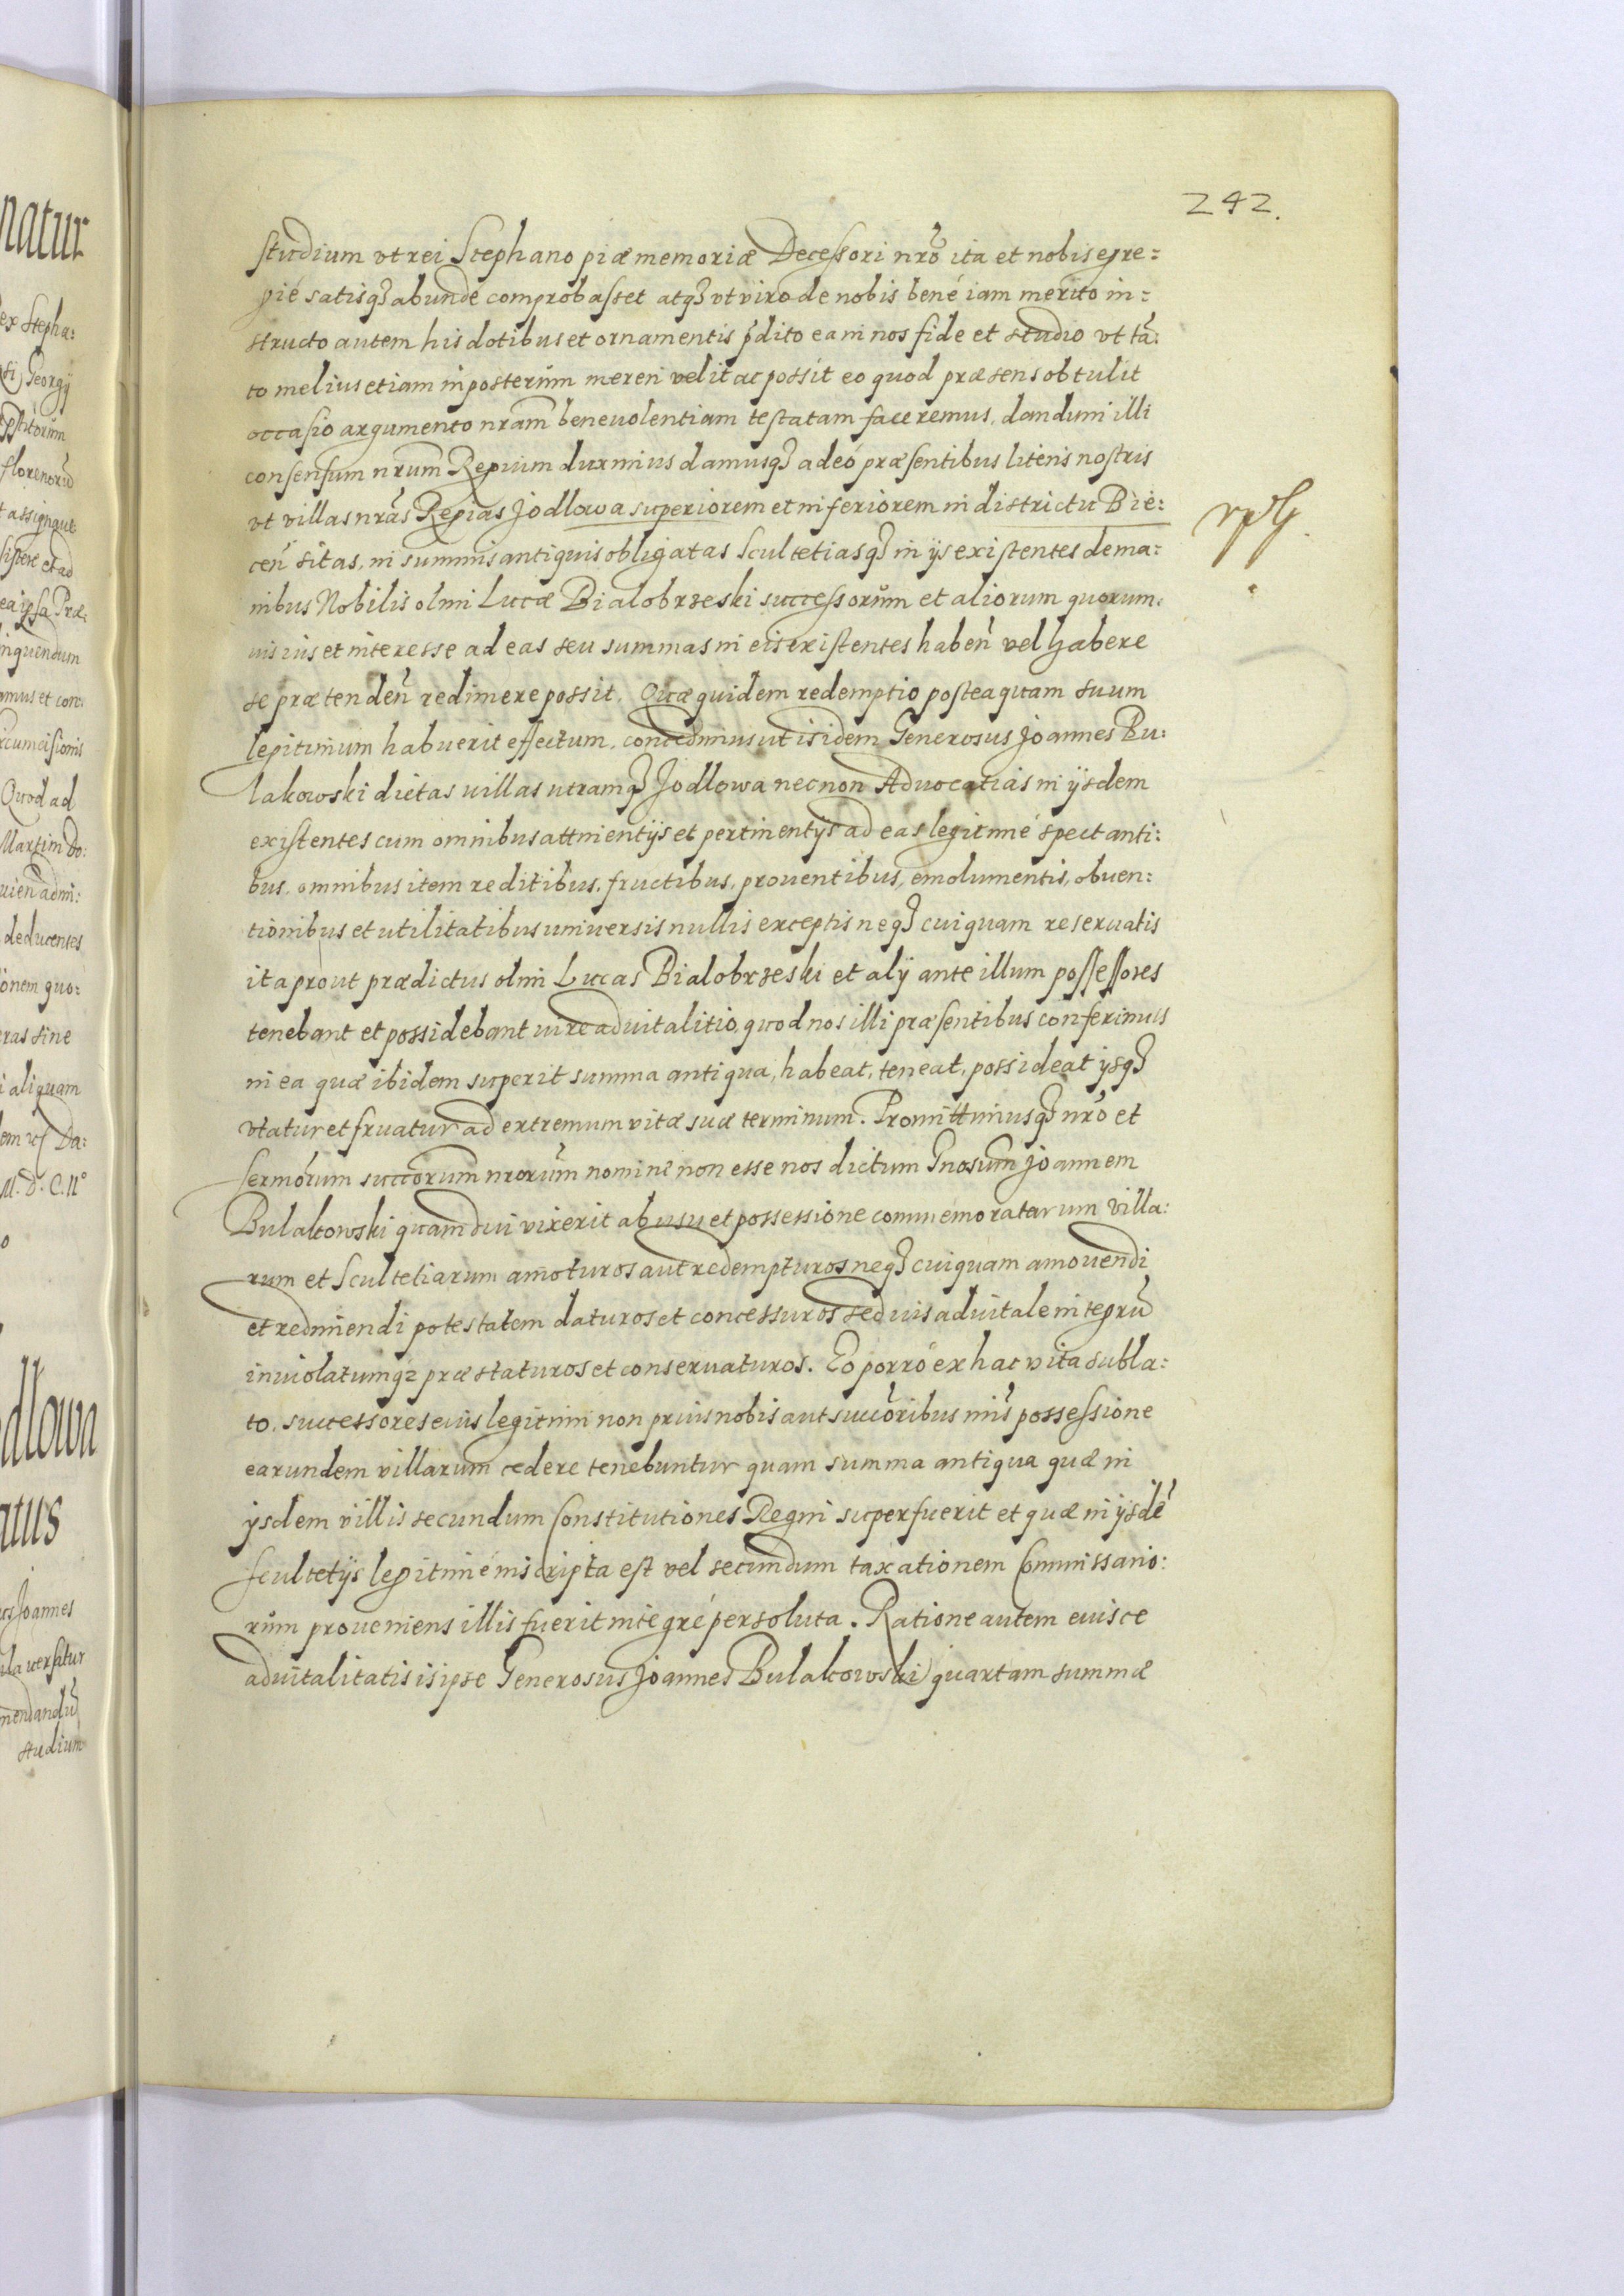 242.
studium vt rei Stephano piæ memoriæ Decessori nrō ita et nobis egre:
gié satisq́ abunde comprobasset atq́ vt viro de nobis bené iam merito in:
structo autem his dotibus et ornamentis p̄dito ea in nos fide et studio vt tā:
to melius etiam in posterum mereri velit ac possit eo quod præsens obtulit
occasio argumento nram̄ beneuolentiam testatam faceremus, dandum illi
consensum nrum̄ Regium duximus damusq́ adeó præsentibus literis nostris
vt villas nrās Regias Jodlowa superiorem et inferiorem in districtu Bie:
ceń sitas, in summis antiquis obligatas Scultetiasq́ in ijs existentes de ma:
nibus Nobilis olim Lucæ Bialobrzeski successorum et aliorum quorum:
uis ius et interesse ad eas seu summas in eis existentes habeń vel habere
se prætendeń redimere possit. Quæ quidem redemptio posteaquam suum
legitimum habuerit effectum, concedimus ut is idem Generosus Joannes Bu:
lakowski dictas uillas utramq́ Jodlowa necnon Aduocatias in ijsdem
existentes cum omnibus attinentijs et pertinentijs ad eas legitimé spectanti:
bus, omnibus item reditibus, fructibus, prouentibus, emolumentis, obuen:
tionibus et utilitatibus uniuersis nullis exceptis neq́ cuiquam reseruatis
ita prout prædictus olim Lucas Bialobrzeski et alij ante illum possessores
tenebant et possidebant iure aduitalitio, quod nos illi præsentibus conferimus
in ea quæ ibidem superit summa antiqua, habeat, teneat, possideat ijsq́
vtatur et fruatur ad extremum vitæ suæ terminum. Promittimusq́ nrō et
sermōrum succōrum nrorum̄ nomine non esse nos dictum Gnosum̄ Joannem
Bulakowski quamdiu vixerit ab usu et possessione commemoratarum villa:
rum et Scultetiarum amoturos aut redempturos neq́ cuiquam amouendi
et redimendi potestatem daturos et concessuros sed ius aduitale integrū
inuiolatumq́z præstaturos et conseruaturos. Eo porró ex hac vita subla:
to, successores eius legitimi non prius nobis aut succōribus nrīs possessione
earundem villarum cedere tenebuntur quam summa antiqua quæ in
ijsdem villis secundum Constitutiones Regni superfuerit et quæ in ijsdē
scultetijs legitimé inscripta est vel secundum taxationem Commissario:
rum proueniens illis fuerit integré persoluta. Ratione autem euisce
aduitalitatis is ipse Generosus Joannes Bulakowski quartam summæ